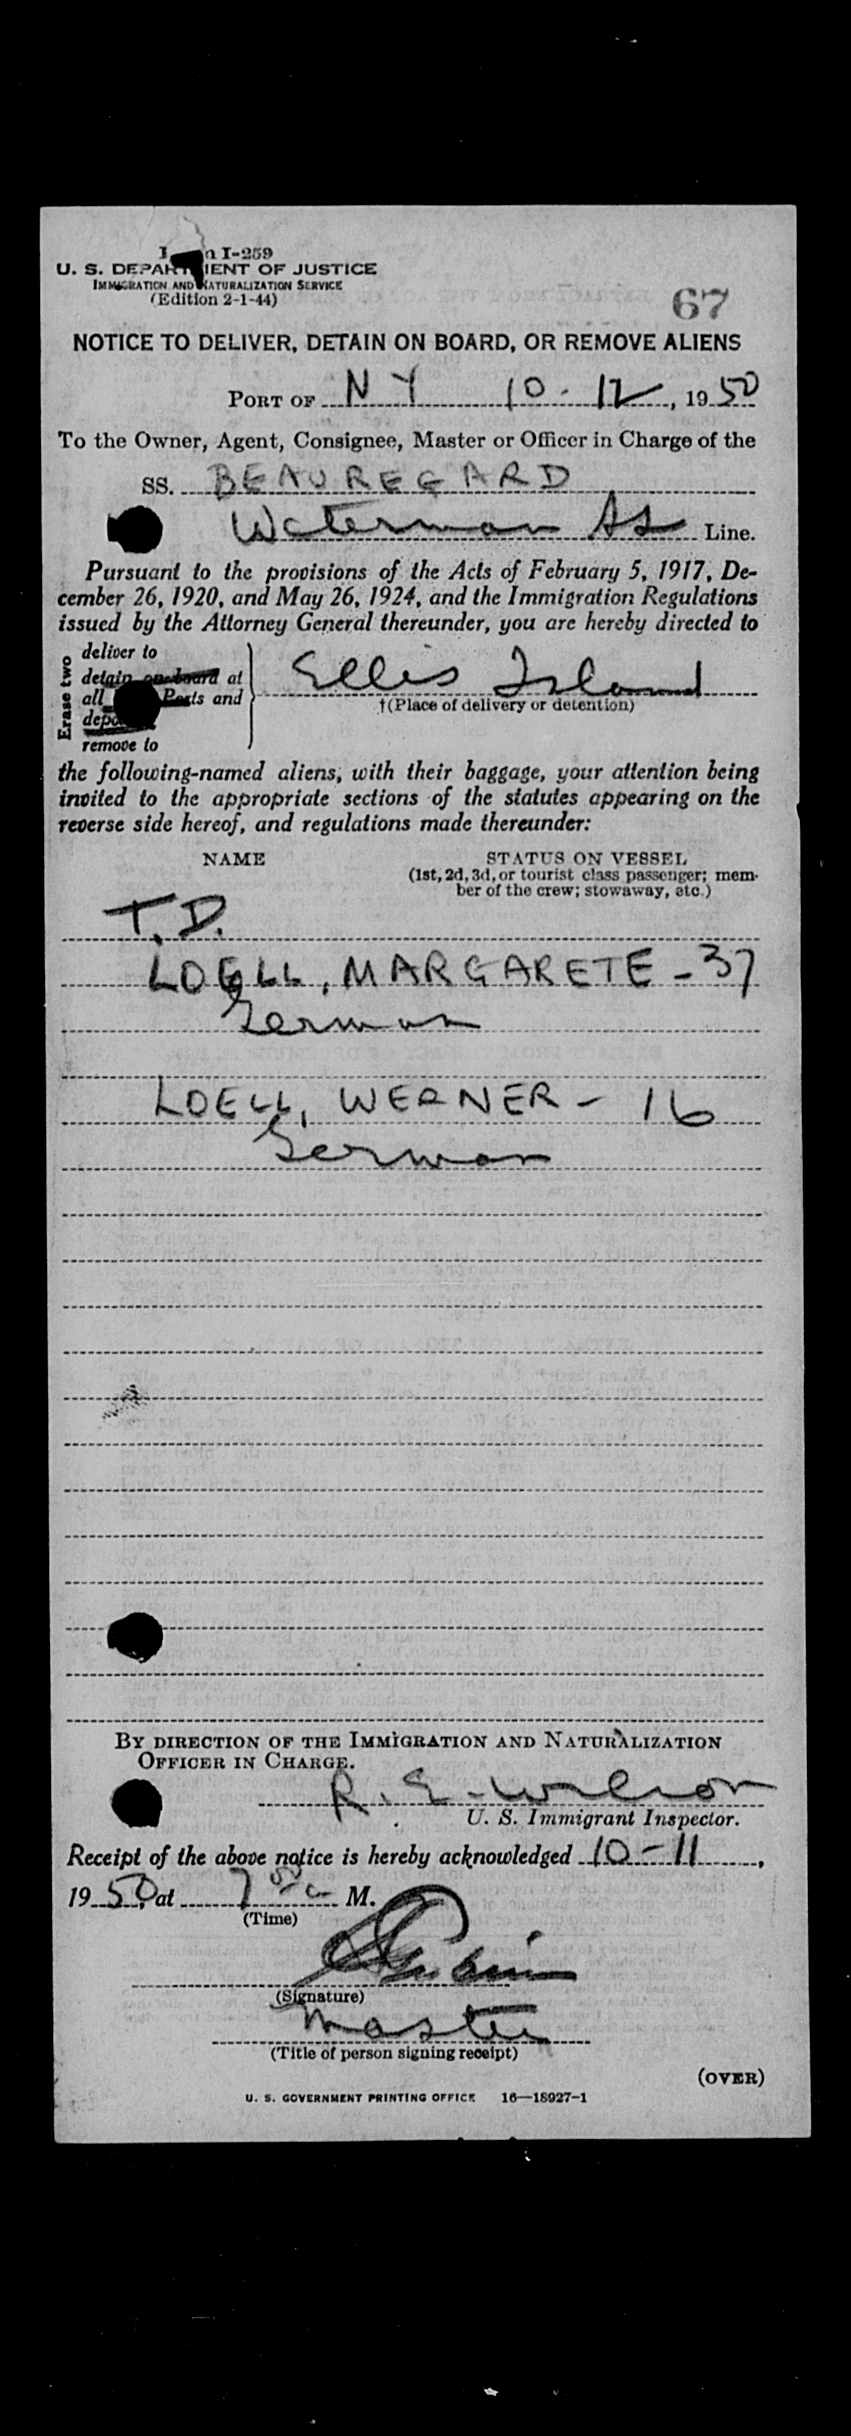 I-259
U. S. DEPARTMENT OF JUSTICE
IMMIGRATION AND NATURALIZATION SERVICE
(Edition 2-1-44)
67
NOTICE TO DELIVER, DETAIN ON BOARD, OR REMOVE ALIENS
PORT OF N Y 10-12, 1950
To the Owner, Agent, Consignee, Master or Officer in Charge of the
SS. BEAUREGARD
Waterman SS Line.
Pursuant to the provisions of the Acts of February 5, 1917, De-
cember 26, 1920, and May 26, 1924, and the Immigration Regulations
issued by the Attorney General thereunder, you are hereby directed to
Erase two
deliver to
detain on board at
all Ports and
remove to
Ellis Island
†(Place of delivery or detention)
the following-named aliens, with their baggage, your attention being
invited to the appropriate sections of the statutes appearing on the
reverse side hereof, and regulations made thereunder:
NAME STATUS ON VESSEL
(1st, 2d, 3d, or tourist class passenger; mem-
ber of the crew; stowaway, etc.)
T.D.
LOELL, MARGARETE - 37
German
LOELL, WERNER - 16
German
BY DIRECTION OF THE IMMIGRATION AND NATURALIZATION
OFFICER IN CHARGE.
R. E. Wilson
U. S. Immigrant Inspector.
Receipt of the above notice is hereby acknowledged 10-11,
1950, at 7 M.
(Time)
(Signature)
Master
(Title of person signing receipt)
(OVER)
U. S. GOVERNMENT PRINTING OFFICE 16—18927-1